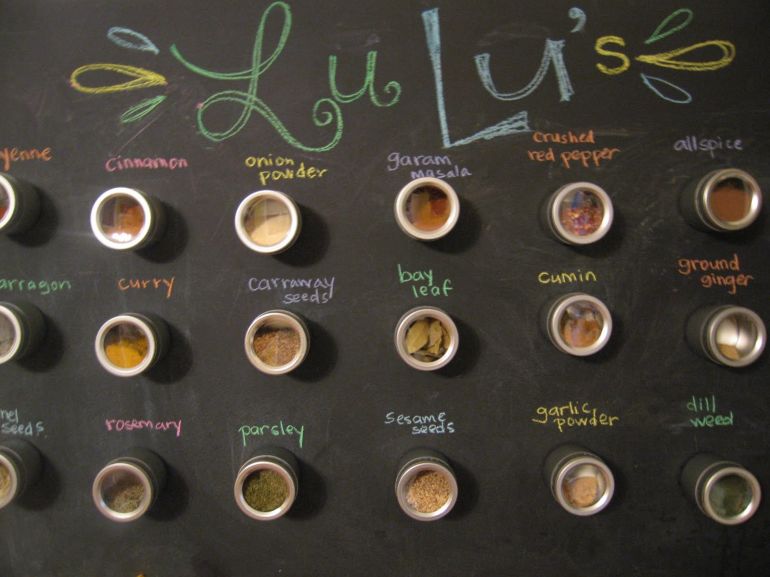 LuLu's
yenne
cinnamon
onion
powder
garam
masala
crushed
red pepper
allspice
arragon
curry
carraway
seeds
bay
leaf
cumin
ground
ginger
nel
seeds
rosemary
parsley
sesame
seeds
garlic
powder
dill
weed